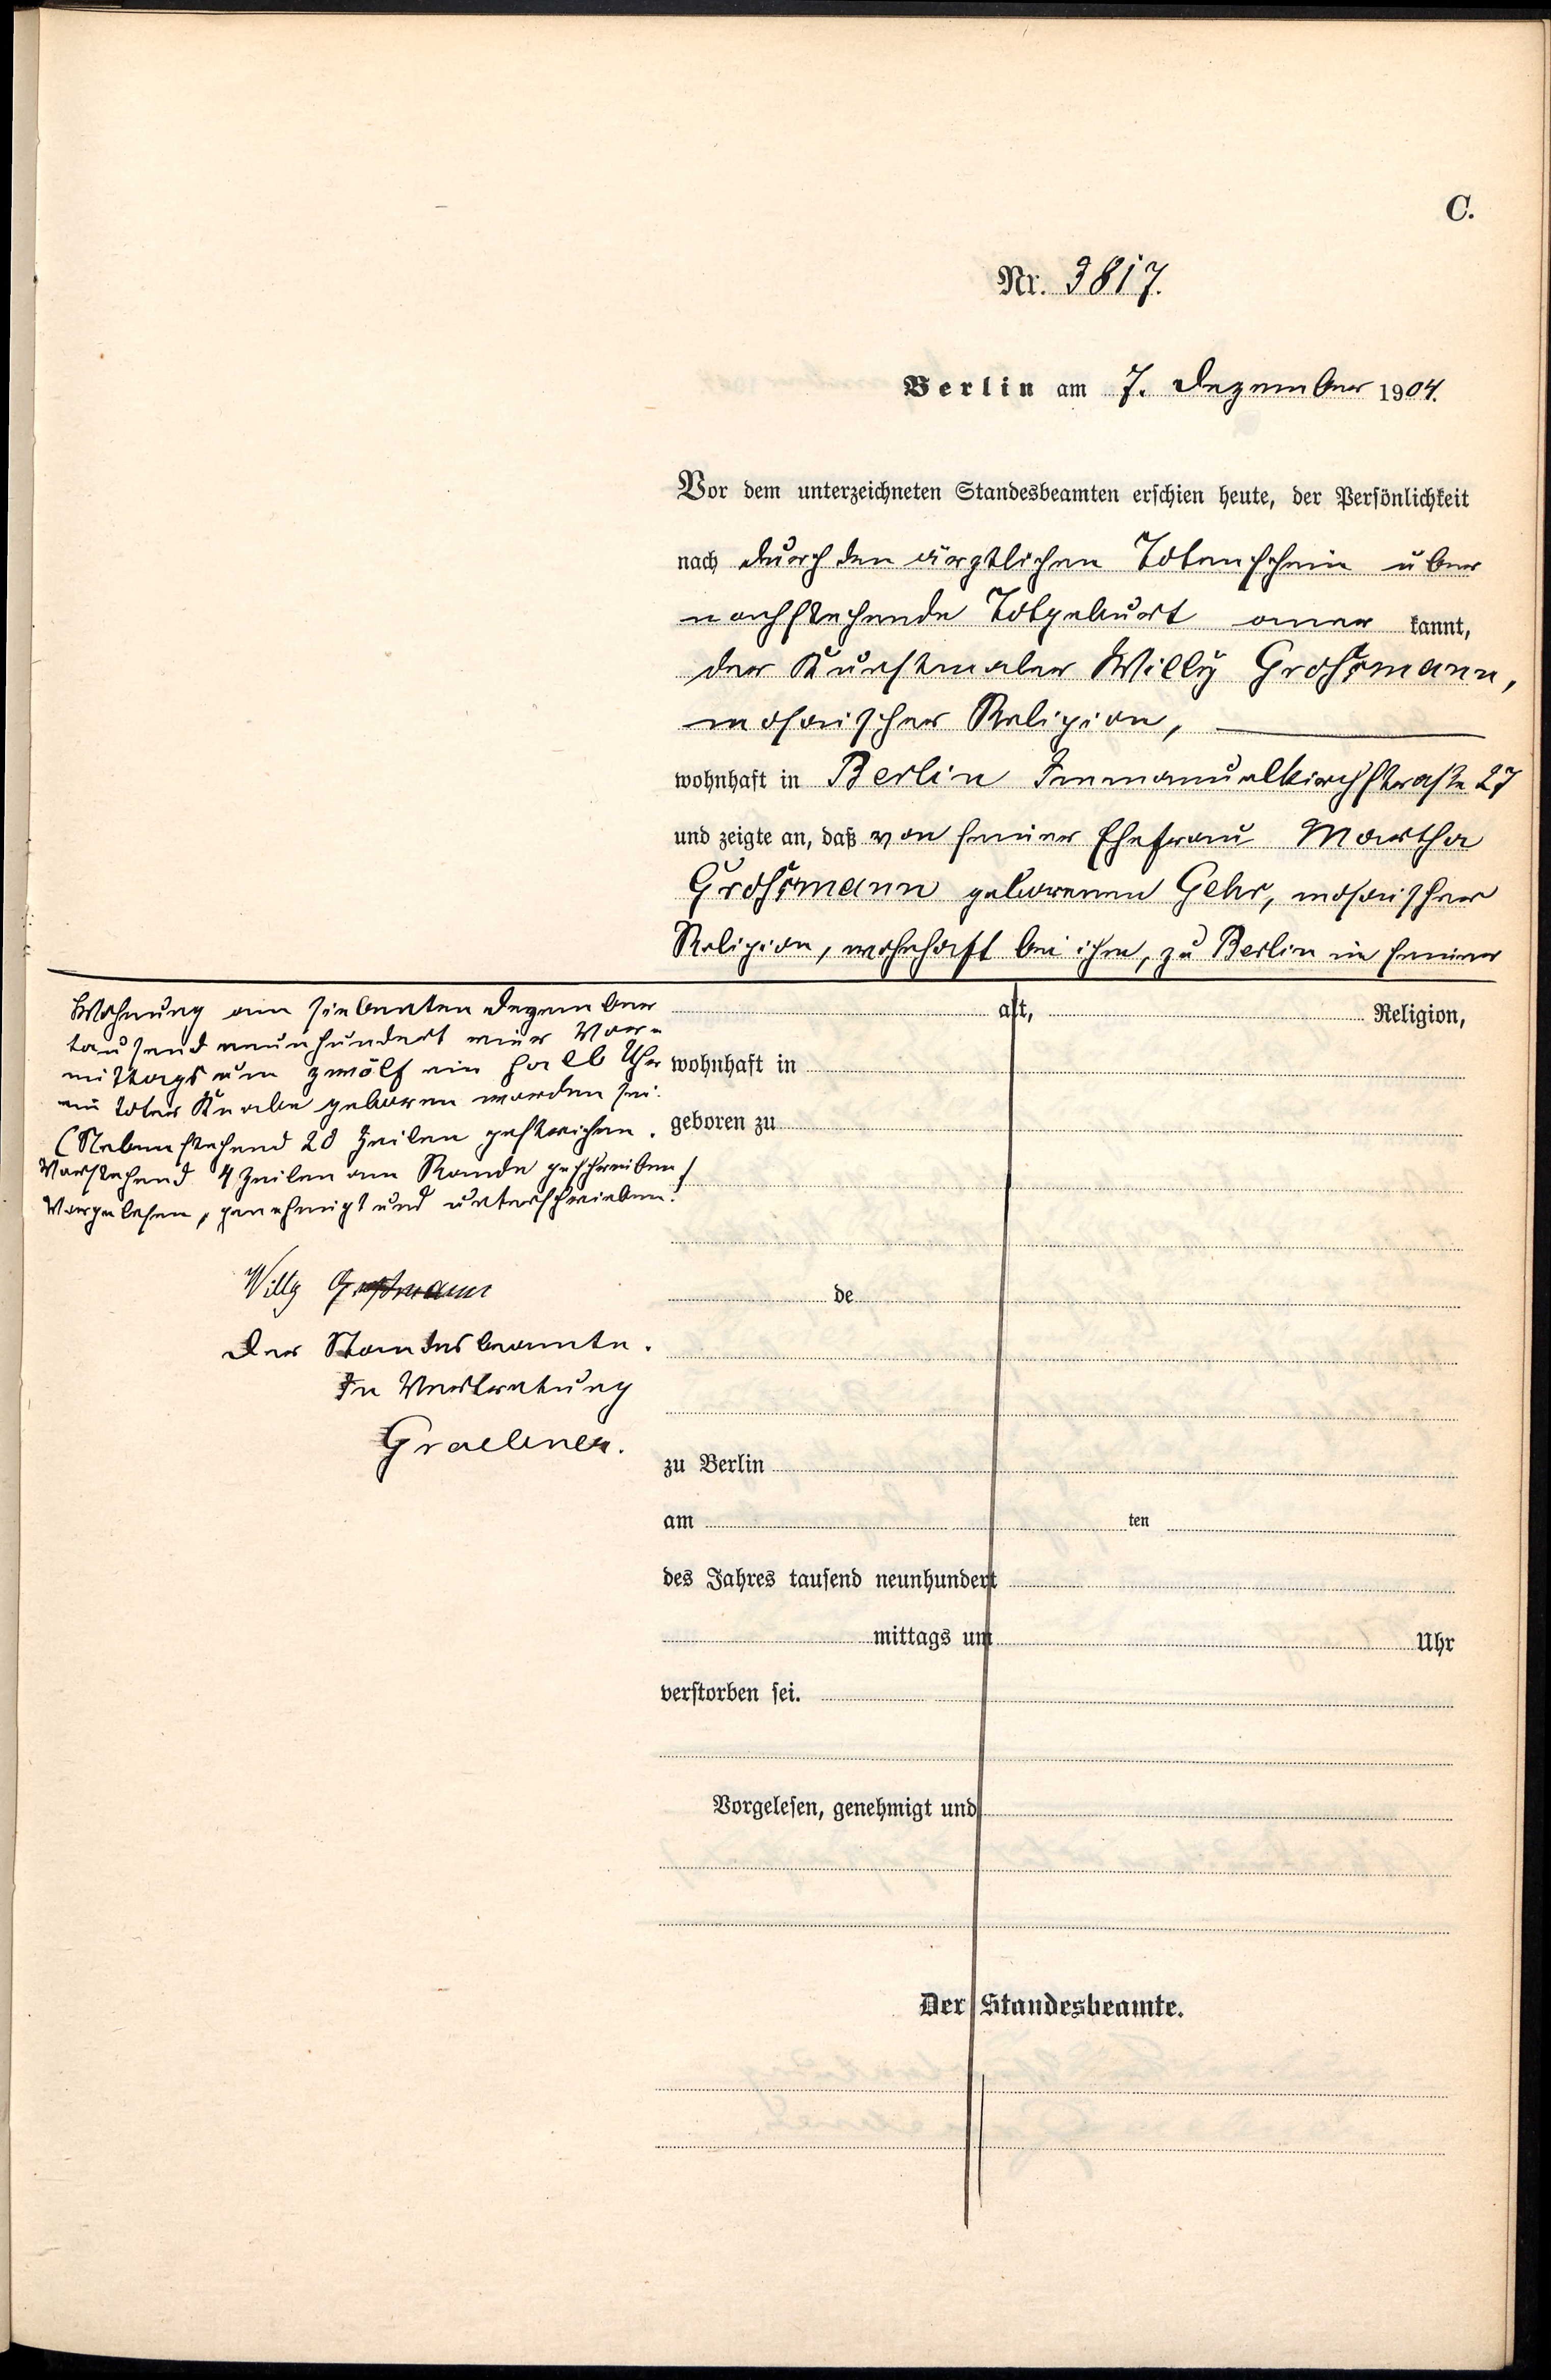 C.
Nr. 3817.
Berlin am 7. Dezember 1904.
Vor dem unterzeichneten Standesbeamten erschien heute, der Persönlichkeit
nach durch den ärztlichen Totenschein über
nachstehende Totgeburt aner kannt,
der Kunstmaler Willy Großmann,
mosaischer Religion,
wohnhaft in Berlin Immanuelkirchstraße 27
und zeigte an, daß von seiner Ehefrau Martha
Großmann geborenen Gehr, mosaischer
Religion, wohnhaft bei ihm, zu Berlin in seiner
Wohnung am siebenten Dezember
tausend neunhundert vier Vor-
mittags um zwölf ein halb Uhr
ein toter Knabe geboren worden sei.
(Nebenstehend 20 Zeilen gestrichen.
Vorstehend 4 Zeilen am Rande geschrieben)
Vorgelesen, genehmigt und unterschrieben.
Willy Großmann
Der Standesbeamte.
In Vertretung
Graebner.
alt, Religion,
wohnhaft in
geboren zu
de
zu Berlin
am ten
des Jahres tausend neunhundert
mittags um Uhr
verstorben sei.
Vorgelesen, genehmigt und
Der Standesbeamte.